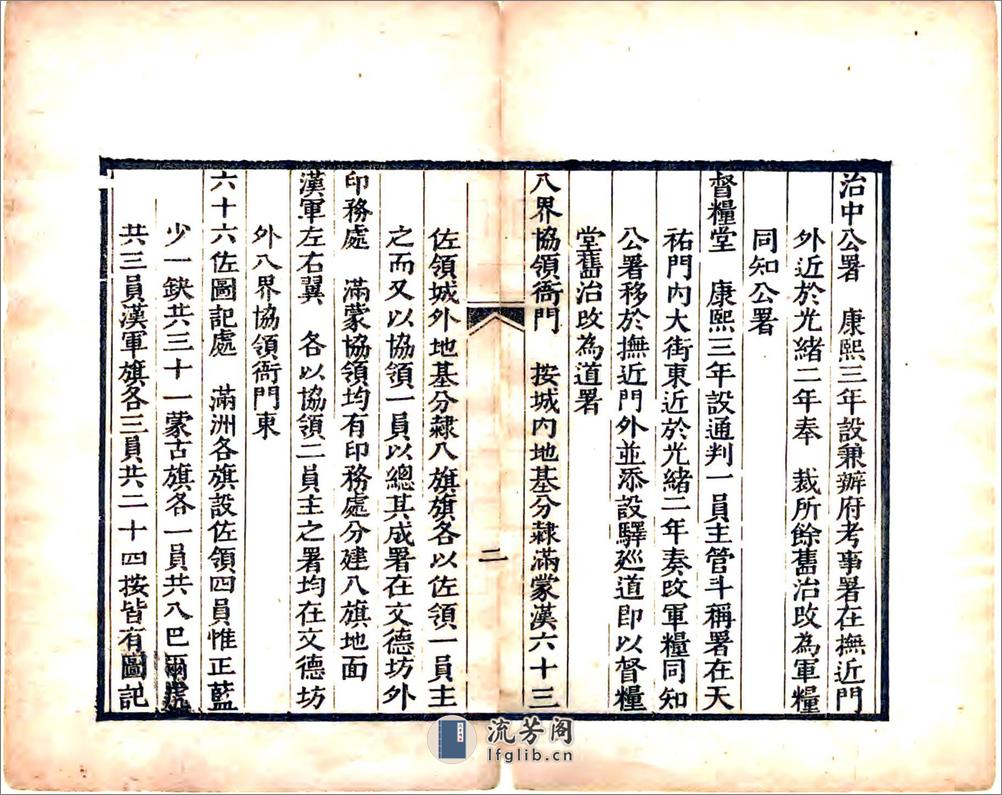 治中公署　康熙三年設兼辦府考事署在撫近門
外近於光緒二年奉　裁所餘舊治改為軍糧
同知公署
督糧堂　康熙三年設通判一員主管斗稱署在天
祐門內大街東近於光緒二年奏改軍糧同知
公署移於撫近門外並添設驛廵道即以督糧
堂舊治改為道署
八界協領衙門　按城內地基分隷滿蒙漢六十三
二
佐領城外地基分隷八旗旗各以佐領一員主
之而又以協領一員以總其成署在文德坊外
印務處　滿蒙協領均有印務處分建八旗地面
漢軍左右翼　各以協領二員主之署均在文德坊
外八界協領衙門東
六十六佐圖記處　滿洲各旗設佐領四員惟正藍
少一鈌共三十一蒙古旗各一員共八巴爾虎
共三員漢軍旗各三員共二十四按皆有圖記
流芳阁
lfglib.cn